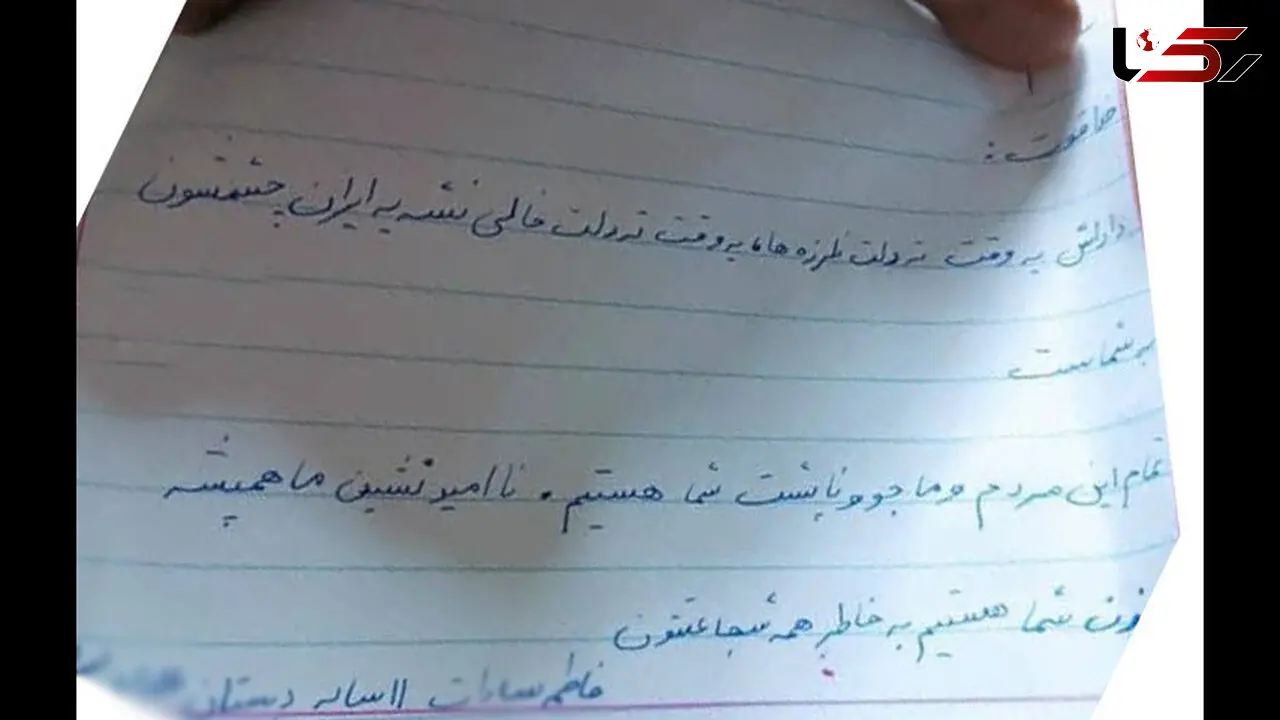 رکنا
خدا قوت :
داداش یه وقت ته دلت نلرزه ها، یه وقت ته دلت خالی نشه یه ایران چشمشون
به شماست
تمام این مردم و ما جوونا پشت شما هستیم. ناامید نشین ما همیشه
شما هستیم به خاطر همه شجاعتتون
فاطمه سادات ۱۱ ساله دبستان